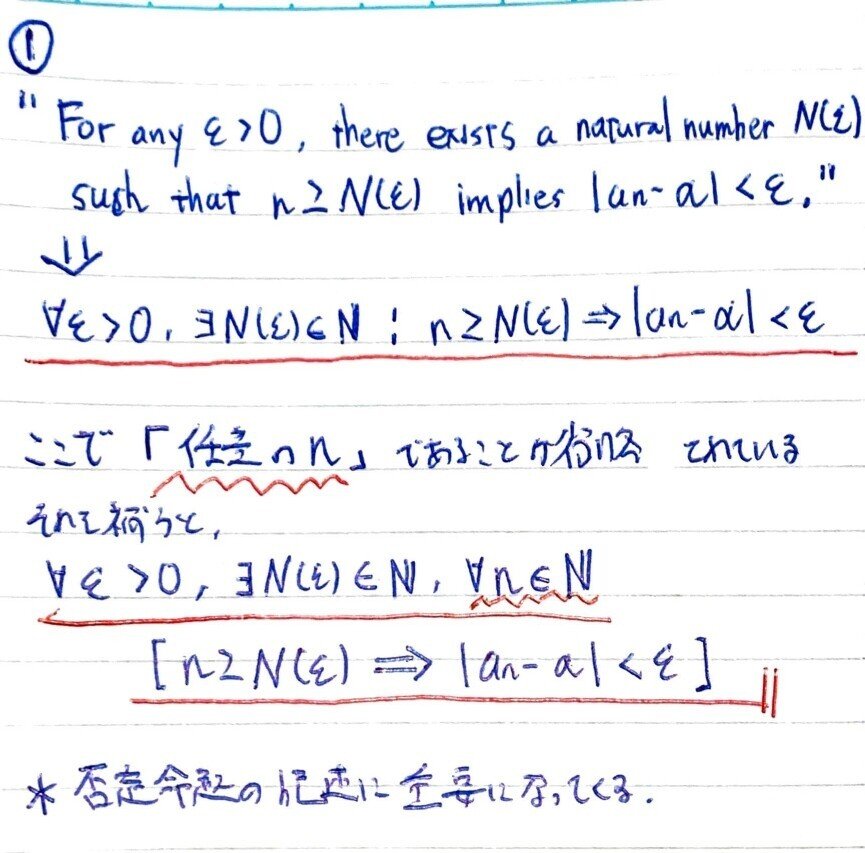 ①
"For any ε>0, there exists a natural number N(ε)
such that n≥N(ε) implies |an-α|<ε."
⇓
∀ε>0, ∃N(ε)∈ℕ : n≥N(ε)⇒|an-α|<ε
ここで「任意のn」であることが省略 されている
それを補うと,
∀ε>0, ∃N(ε)∈ℕ, ∀n∈ℕ
[n≥N(ε)⇒|an-α|<ε]
* 否定命題の記述に重要になってくる.